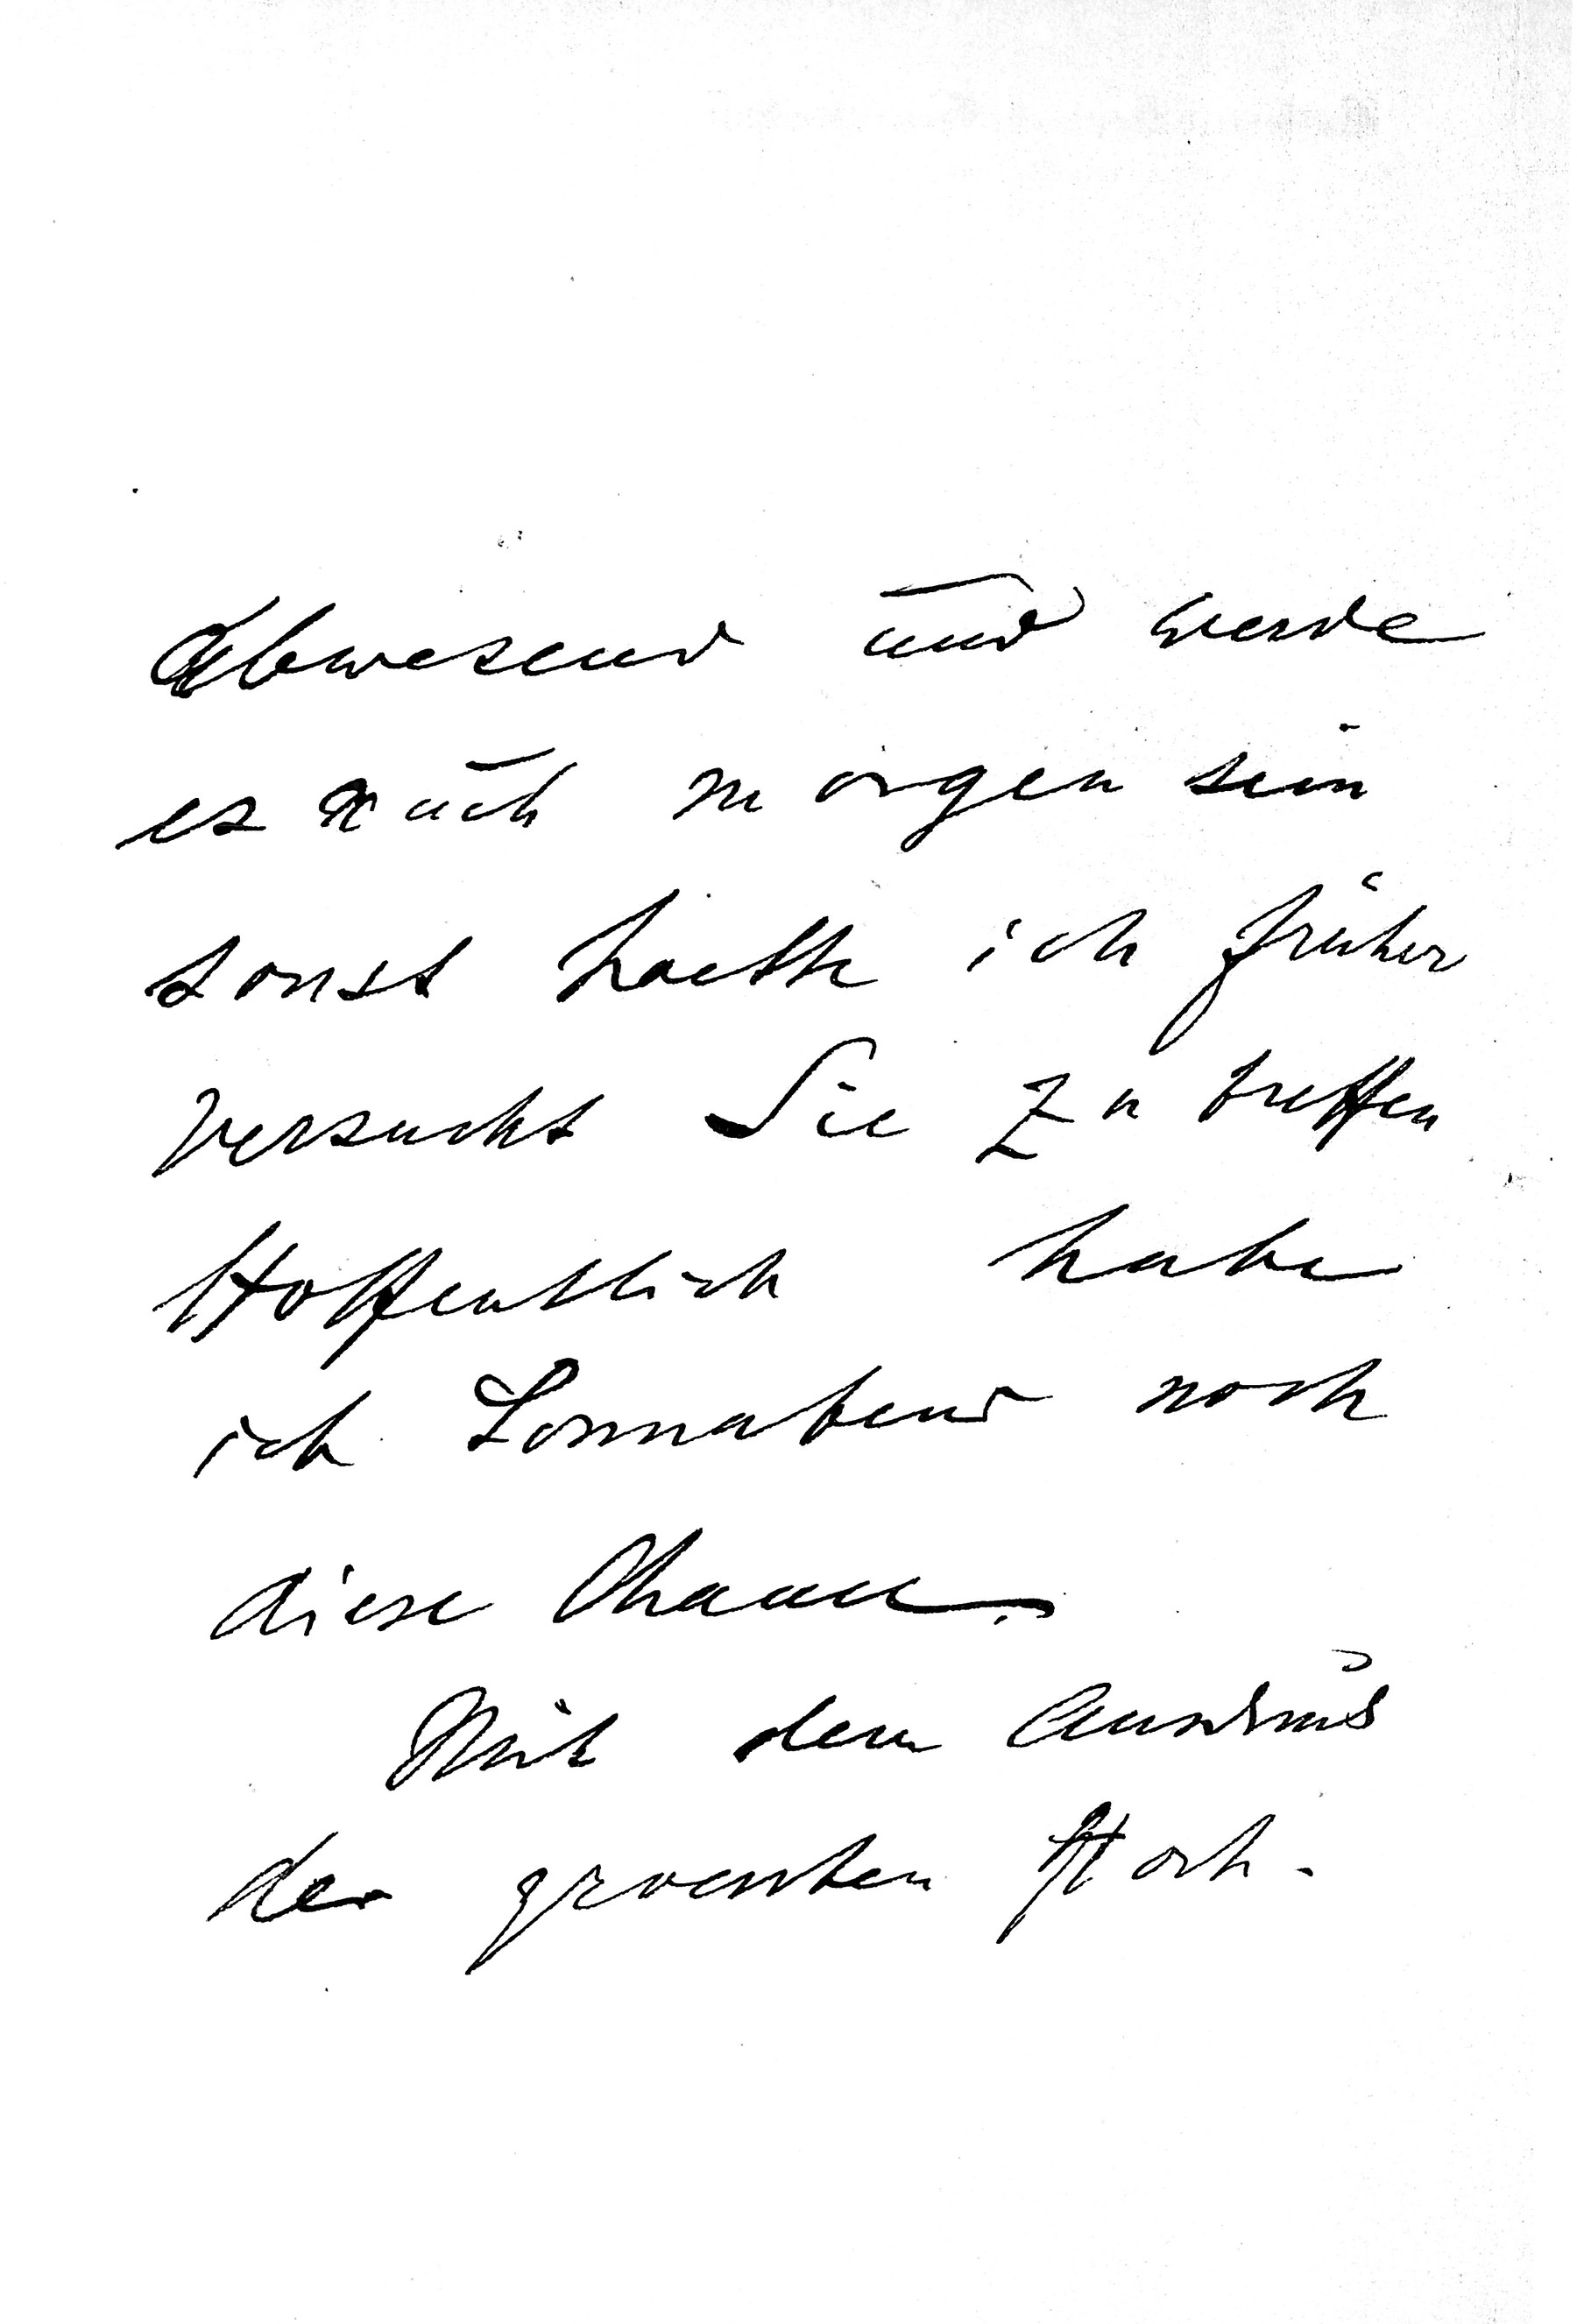 Abwesend und werde
es auch morgen sein
sonst haette ich früher
versucht Sie zu treffen
Hoffentlich habe
ich Sonnabend noch
diese Chance.
Mit dem Ausdruck
der groessten Hoch-